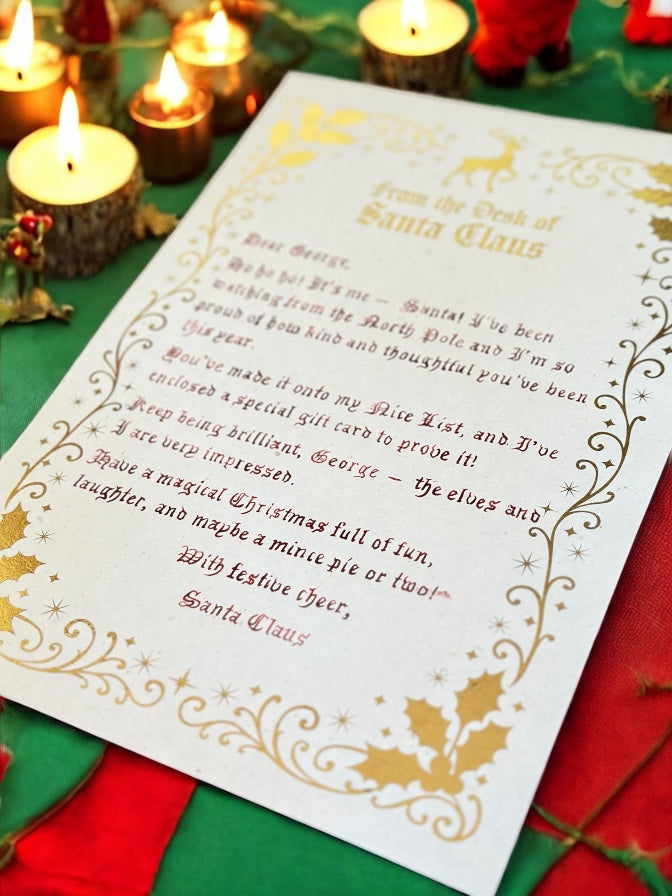 From the Desk of
Santa Claus
Dear George,
Ho ho ho! It's me – Santa! I've been
watching from the North Pole and I'm so
proud of how kind and thoughtful you've been
this year.
You've made it onto my Nice List, and I've
enclosed a special gift card to prove it!
Keep being brilliant, George – the elves and
I are very impressed.
Have a magical Christmas full of fun,
laughter, and maybe a mince pie or two!
With festive cheer,
Santa Claus